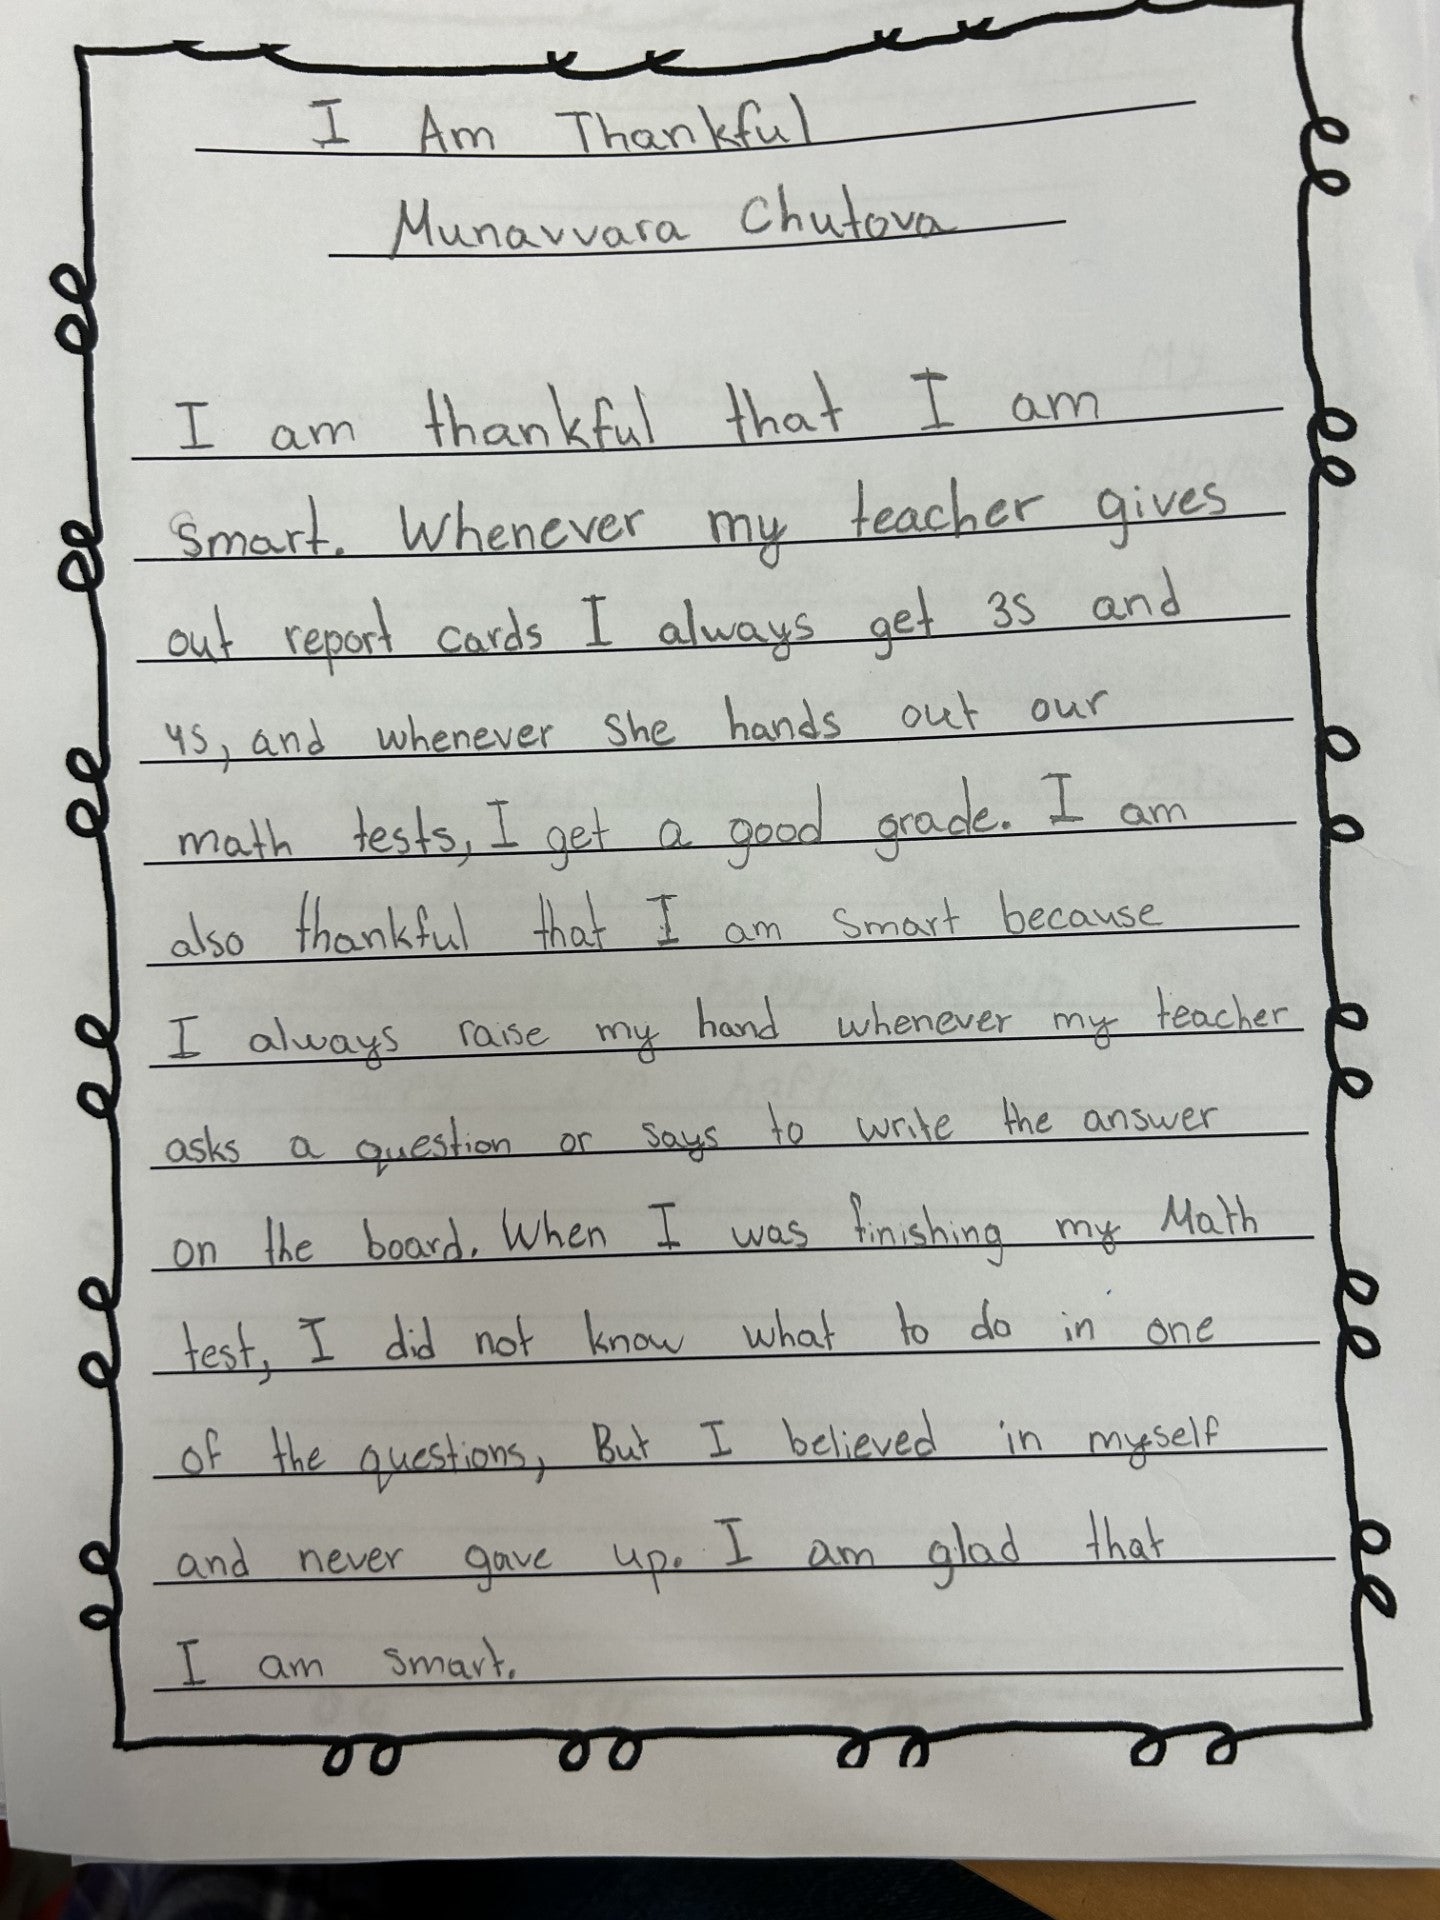 I Am Thankful
Munavvara Chutova
I am thankful that I am
Smart. Whenever my teacher gives
out report cards I always get 3s and
4s, and whenever she hands out our
math tests, I get a good grade. I am
also thankful that I am smart because
I always raise my hand whenever my teacher
asks a question or says to write the answer
on the board. When I was finishing my Math
test, I did not know what to do in one
of the questions, But I believed in myself
and never gave up. I am glad that
I am smart.